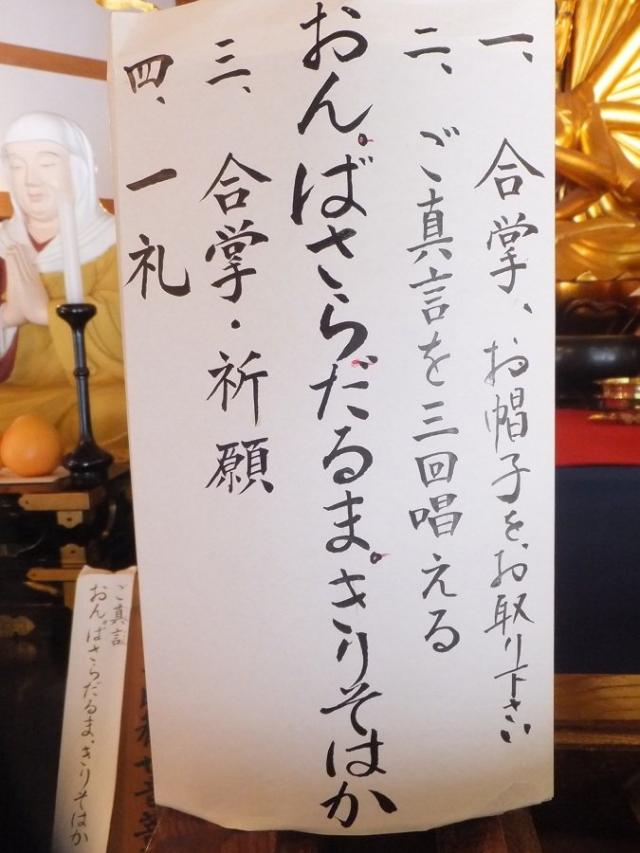 一、合掌、お帽子をお取り下さい
二、ご真言を三回唱える
おん。ばさらだるま。きりそはか
三、合掌・祈願
四、一礼
ご真言
おん。ばさらだるま。きりそはか